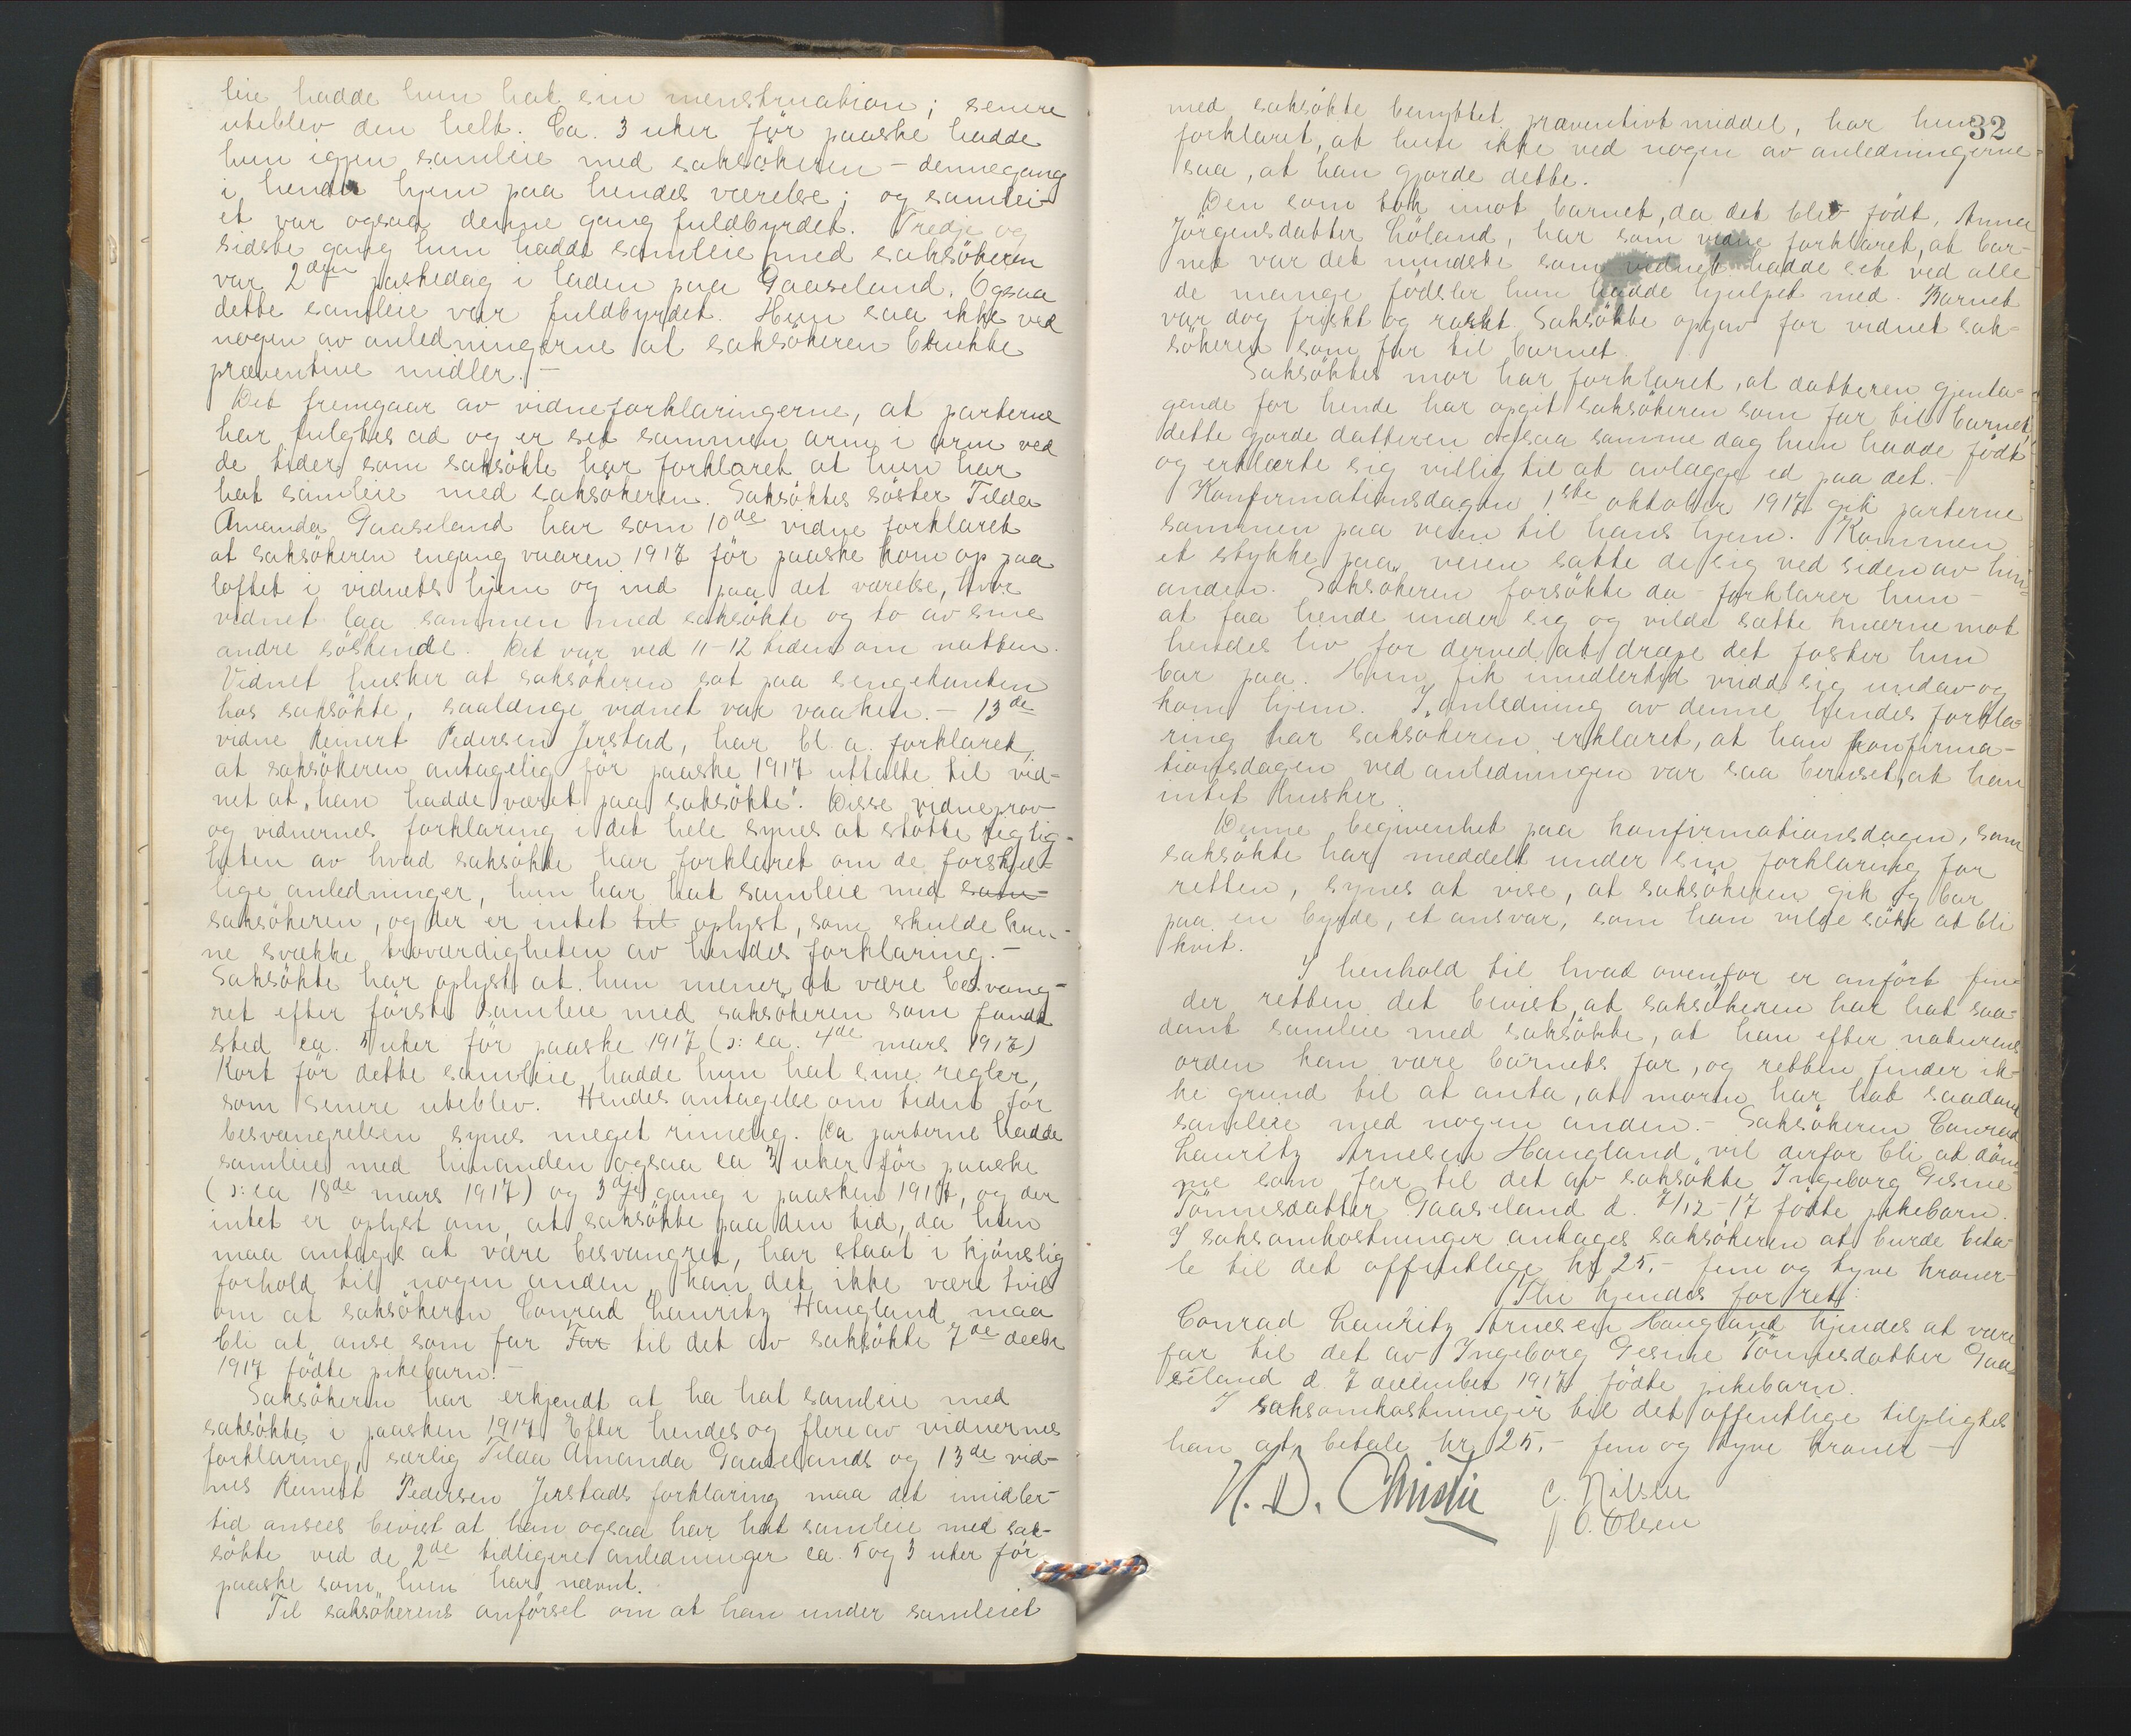 leie hadde hun hat sin menstruation; senere
uteblev den helt. Ca. 3 uker før paaske hadde
hun igjen samleie med saksøkeren – dennegang
i hendes hjem paa hendes værelse; og samlei-
et var ogsaa denne gang fuldbyrdet. Tredje og
sidste gang hun hadde samleie med saksøkeren
var 2den paaskedag i laden paa Gaaseland. Ogsaa
dette samleie var fuldbyrdet. Hun saa ikke ved
nogen av anledningerne at saksøkeren brukte
præventive midler. –
Det fremgaar av vidneforklaringerne, at parterne
har fulgtes ad og er set sammen arm i arm ved
de tider, som saksøkte har forklaret at hun har
hat samleie med saksøkeren. Saksøktes søster Tilda
Amanda Gaaseland har som 10de vidne forklaret
at saksøkeren engang vaaren 1917 før paaske kom op paa
loftet i vidnets hjem og ind paa det værelse, hvor
vidnet laa sammen med saksøkte og to av sine
andre søskende. Det var ved 11-12 tiden om natten.
Vidnet husker at saksøkeren sat paa sengekanten
hos saksøkte, saalænge vidnet var vaaken. – 13de
vidne Reinert Pedersen Jerstad, har bl. a. forklaret,
at saksøkeren antagelig før paaske 1917 uttalte til vid-
net at „han hadde været paa saksøkte". Disse vidneprov
og vidnernes forklaring i det hele synes at støtte rigtig-
heten av hvad saksøkte har forklaret om de forskjel-
lige anledninger, hun har hat samleie med sam-
saksøkeren, og der er intet til oplyst, som skulde kun-
ne svække troværdigheten av hendes forklaring. –
Saksøkte har oplyst at hun mener at være besvang-
ret efter første samleie med saksøkeren som fandt
sted ca. 5 uker før paaske 1917 (ɔ: ca. 4de mars 1917)
Kort før dette samleie hadde hun hat sine regler,
som senere uteblev. Hendes antagelse om tiden for
besvangrelsen synes meget rimelig. Da parterne hadde
samleie med hinanden ogsaa ca 3 uker før paaske
(ɔ: ca 18de mars 1917) og 3dje gang i paasken 1917, og der
intet er oplyst om, at saksøkte paa den tid, da hun
maa antages at være besvangret, har staat i kjønslig
forhold til nogen anden, kan det ikke være tvil
om at saksøkeren Conrad Lauritz Haugland maa
bli at anse som far Far til det av saksøkte 7de decbr
1917 fødte pikebarn. –
Saksøkeren har erkjendt at ha hat samleie med
saksøkte i paasken 1917. Efter hendes og flere av vidnernes
forklaring, særlig Tilda Amanda Gaaselands og 13de vid-
nes Reinert Pedersen Jerstads forklaring maa det imidler-
tid ansees bevist at han ogsaa har hat samleie med sak-
søkte ved de 2de tidligere anledninger ca. 5 og 3 uker før
paaske som hun har nævnt.
Til saksøkerens anførsel om at han under samleiet
32
med saksøkte benyttet præventivt middel, har hun
forklaret, at hun ikke ved nogen av anledningerne
saa, at han gjorde dette.
Den som tok imot barnet, da det blev født, Anna
Jörgensdatter Høland, har som vidne forklaret, at bar-
net var det mindste som vidnet hadde set ved alle
de mange fødsler hun hadde hjulpet med. Barnet
var dog friskt og raskt. Saksøkte opgav for vidnet sak-
søkeren som far til barnet.
Saksøktes mor har forklaret, at datteren gjenta-
gende for hende har opgit saksøkeren som far til barnet,
dette gjorde datteren ogsaa samme dag hun hadde født
og erklærte sig villig til at avlægge ed paa det. –
Konfirmationsdagen 1ste oktober 1917 gik parterne
sammen paa veien til hans hjem. Kommen
et stykke paa veien satte de sig ved siden av hin-
anden. Saksøkeren forsøkte da – forklarer hun –
at faa hende under sig og vilde sætte knærne mot
hendes liv for derved at dræpe det foster hun
bar paa. Hun fik imidlertid vridd sig undav og
kom hjem. I anledning av denne hendes forkla-
ring har saksøkeren erklæret, at han konfirma-
tionsdagen ved anledningen var saa beruset, at han
intet husker.
Denne begivenhet paa konfirmationsdagen, som
saksøkte har meddelt under sin forklaring for
retten, synes at vise, at saksøkeren gik og bar
paa en byrde, et ansvar, som han vilde søke at bli
kvit.
I henhold til hvad ovenfor er anført fin-
der retten det bevist, at saksøkeren har hat saa-
dant samleie med saksøkte, at han efter naturens
orden kan være barnets far, og retten finder ik-
ke grund til at anta, at moren har hat saadant
samleie med nogen anden. – Saksøkeren Conrad
Lauritz Arnesen Haugland vil derfor bli at døm-
me som far til det av saksøkte Ingeborg Gesine
Tönnesdatter Gaaseland d. 7/12-17 fødte pikebarn.
I saksomkostninger antages saksøkeren at burde beta-
le til det offentlige kr 25.– fem og tyve kroner–
Thi kjendes for ret:
Conrad Lauritz Arnesen Haugland kjendes at være
far til det av Ingeborg Gesine Tönnesdatter Gaa-
seland d. 7 december 1917 fødte pikebarn.
I saksomkostninger til det offentlige tilpligtes
han at betale kr. 25.– fem og tyve kroner –
H. D. Christie
C. Nilsen
O. Olsen